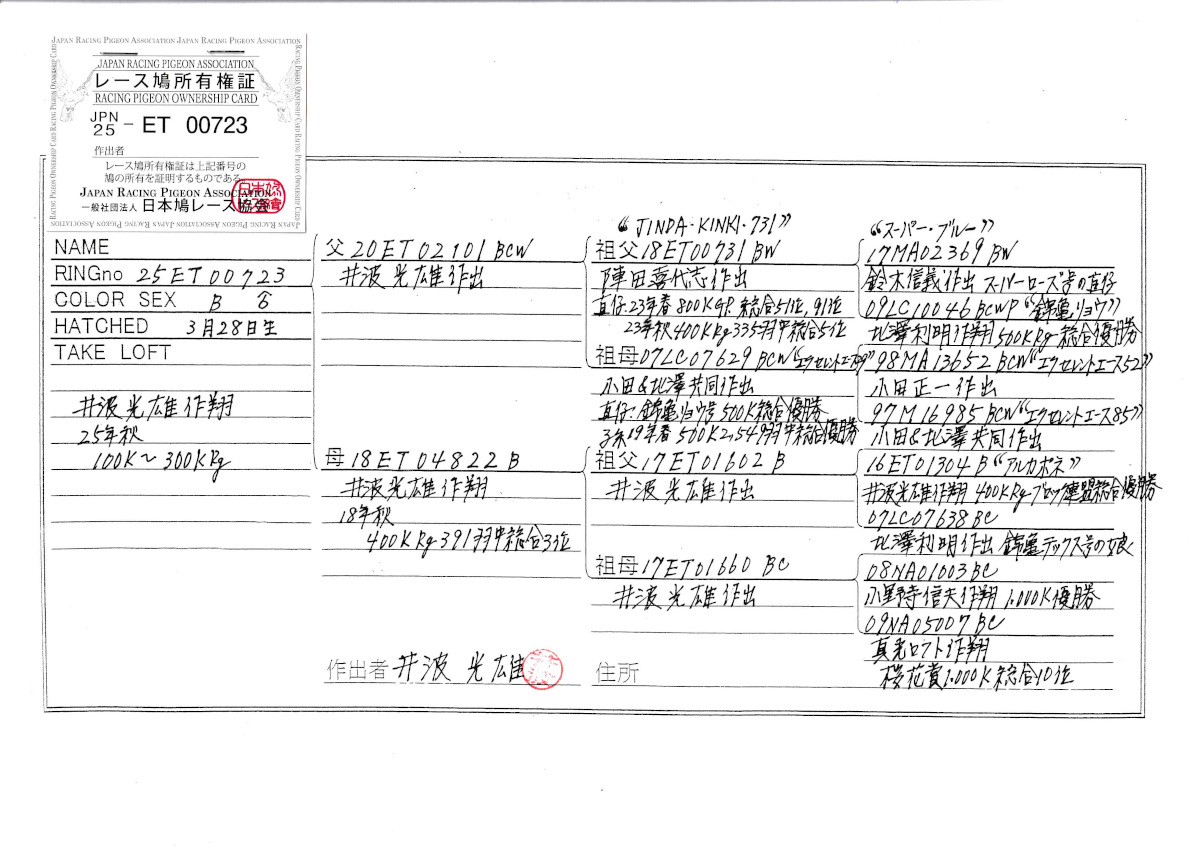 JAPAN RACING PIGEON ASSOCIATION JAPAN RACING PIGEON ASSOCIATION
JAPAN RACING PIGEON ASSOCIATION
レース鳩所有権証
RACING PIGEON OWNERSHIP CARD
JPN
25 - ET 00723
作出者
レース鳩所有権証は上記番号の
鳩の所有を証明するものである。
JAPAN RACING PIGEON ASSOCIATION
一般社団法人 日本鳩レース協会
NAME
RINGno 25ET00723
COLOR SEX B ♀
HATCHED 3月28日生
TAKE LOFT
井波光雄作翔
25年秋
100K〜300KRg
父 20ET02101 BCW
井波光雄作出
母 18ET04822 B
井波光雄作翔
18年秋
400KRg 391羽中総合3位
作出者 井波光雄
"JINDA・KINKI・731"
祖父 18ET00731 BW
陣田喜代志作出
直仔:23年春800KGP.総合51位,91位
23年秋400KRg335羽中総合5位
祖母 07LC07629 BCW "エクセレントエース99"
小田&北澤共同作出
直仔:錦亀リョウ号500K総合優勝
子系19年春500K2,549羽中総合優勝
祖父 17ET01602 B
井波光雄作出
祖母 17ET01660 BC
井波光雄作出
住所
"スーパー・ブルー"
17MA02369 BW
鈴木信義作出 スーパーローズ号の直仔
09LC10046 BCWP "錦亀リョウ"
北澤利明作翔500KRg総合優勝
98MA13652 BCW "エクセレントエース52"
小田正一作出
97M16985 BCW "エクセレントエース85"
小田&北澤共同作出
16ET01304 B "アルカポネ"
井波光雄作翔400KRgブロック連盟総合優勝
07LC07638 BC
北澤利明作出 錦亀テックス号の娘
08NA01003 BC
小野寺信夫作翔1,000K優勝
09NA05007 BC
真光ロフト作翔
桜花賞1,000K総合10位